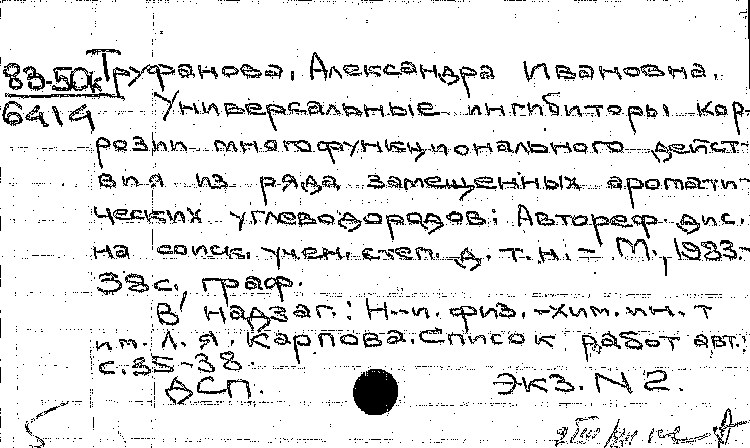 83-50к Труфанова, Александра Ивановна.
6414 Универсальные ингибиторы кор-
розии многофункционального дейст-
вия из ряда замещенных аромати-
ческих углеводородов: Автореф. дис.
на соиск. учен. степ. д. т. н. - М., 1983.-
38 с., граф.
В надзаг.: Н.-и. физ.-хим. ин. т
им. Л. Я. Карпова. Список работ авт.:
с. 35-38.
ДСП. Экз. N 2.